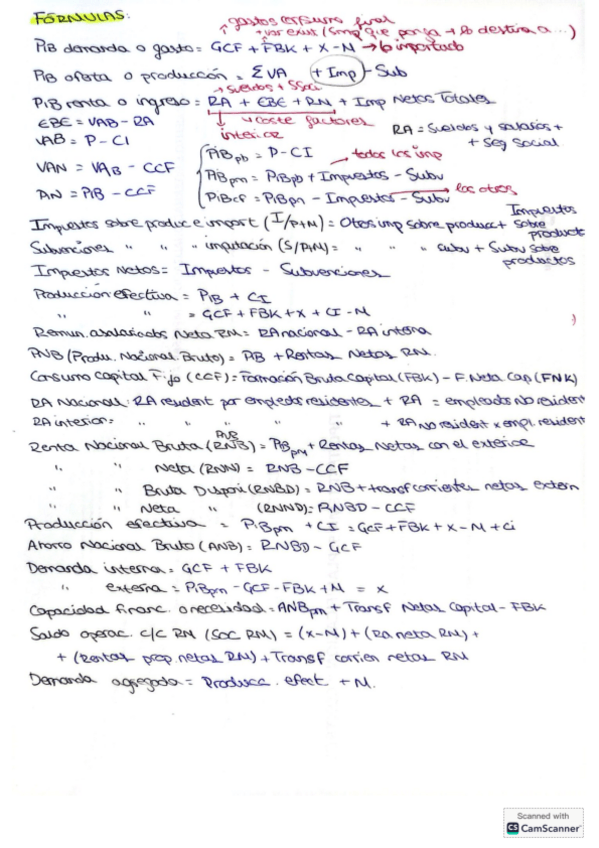 FÓRNULAS:
gastos consumo final
+ var exist (Smp que ponga + lo destina a...)
PIB demanda o gasto = GCF + FBK + X - M → lo importado
PIB oferta o producción = ΣVA (+ Imp) - Sub
→ sueldos + SSoci
PIB renta o ingreso = RA + EBE + RN + Imp Netos Totales
EBE = VAB - RA
coste factores
interior
RA = Sueldos y salarios +
+ Seg Social
VAB = P - CI
PIBpb = P - CI
→ todos los imp
VAN = VAB - CCF
PIBpm = PIBpb + Impuestos - Subv
AN = PIB - CCF
PIBcf = PIBpm - Impuestos - Subv
los otros
Impuestos sobre produc e import (I/P+M) = Otros imp sobre produc + Impuestos sobre producto
Subvenciones " " " imputación (S/P+M) = " " subv + Subv sobre productos
Impuestos Netos = Impuestos - Subvenciones
Producción efectiva = PIB + CI
" " = GCF + FBK + X + CI - M
Remun. asalariados Neta RM = RA nacional - RA interna
PNB (Produ. Nacional Bruto) = PIB + Rentas Netas RM.
Consumo Capital Fijo (CCF) = Formación Bruta Capital (FBK) - F. Neta Cap (FNK)
RA Nacional: RA resident por empleados residentes + RA = empleados no resident
RA interior = " " " " + RA no resident x empl. resident
Renta Nacional Bruta (RNB) = PIBpm + Rentas Netas con el exterior
PNB
" " Neta (RNN) = RNB - CCF
" " Bruta Dispon (RNBD) = RNB + transf corrientes netas extern
" " Neta " (RNND) = RNBD - CCF
Producción efectiva = PIBpm + CI = GCF + FBK + X - M + Ci
Ahorro Nacional Bruto (ANB) = RNBD - GCF
Demanda interna = GCF + FBK
" externa = PIBpm - GCF - FBK + M = X
Capacidad financ. o necesidad = ANBpm + Transf Netas Capital - FBK
Saldo operac. c/c RM (SOC RM) = (X-M) + (RA neta RM) +
+ (Rentas prop. netas RM) + Transf corrien netas RM
Demanda agregada = Producc. efect + M.
Scanned with
CS CamScanner